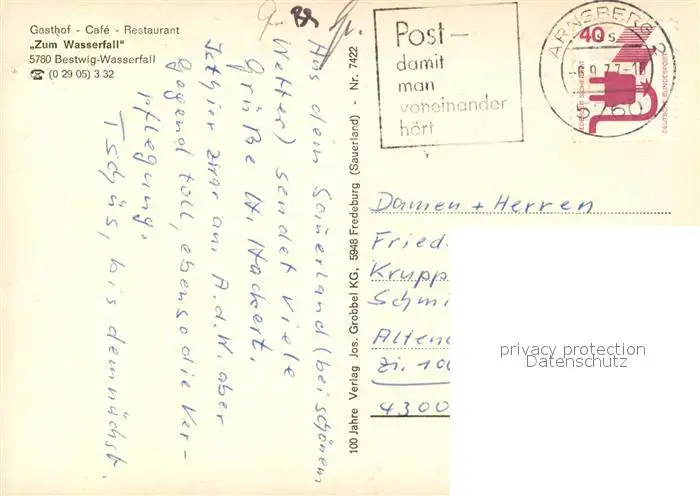 Gasthof - Café - Restaurant
„Zum Wasserfall"
5780 Bestwig-Wasserfall
☎ (0 29 05) 3 32
Aus dem Sauerland (bei schönem
Wetter) sendet viele
Grüße H. Hackert.
Ist hier zwar am A.d.W. aber
Gegend toll, ebenso die Ver-
pflegung.
Tschüs, bis demnächst.
100 Jahre Verlag Jos. Grobbel KG, 5948 Fredeburg (Sauerland) - Nr. 7422
Post-
damit
man
voneinander
hört
ARNSBERG 2
5760
40
DEUTSCHE BUNDESPOST
Damen + Herren
Fried.
Krupp
Schmi
Altend
Zi. 10
4300
privacy protection
Datenschutz